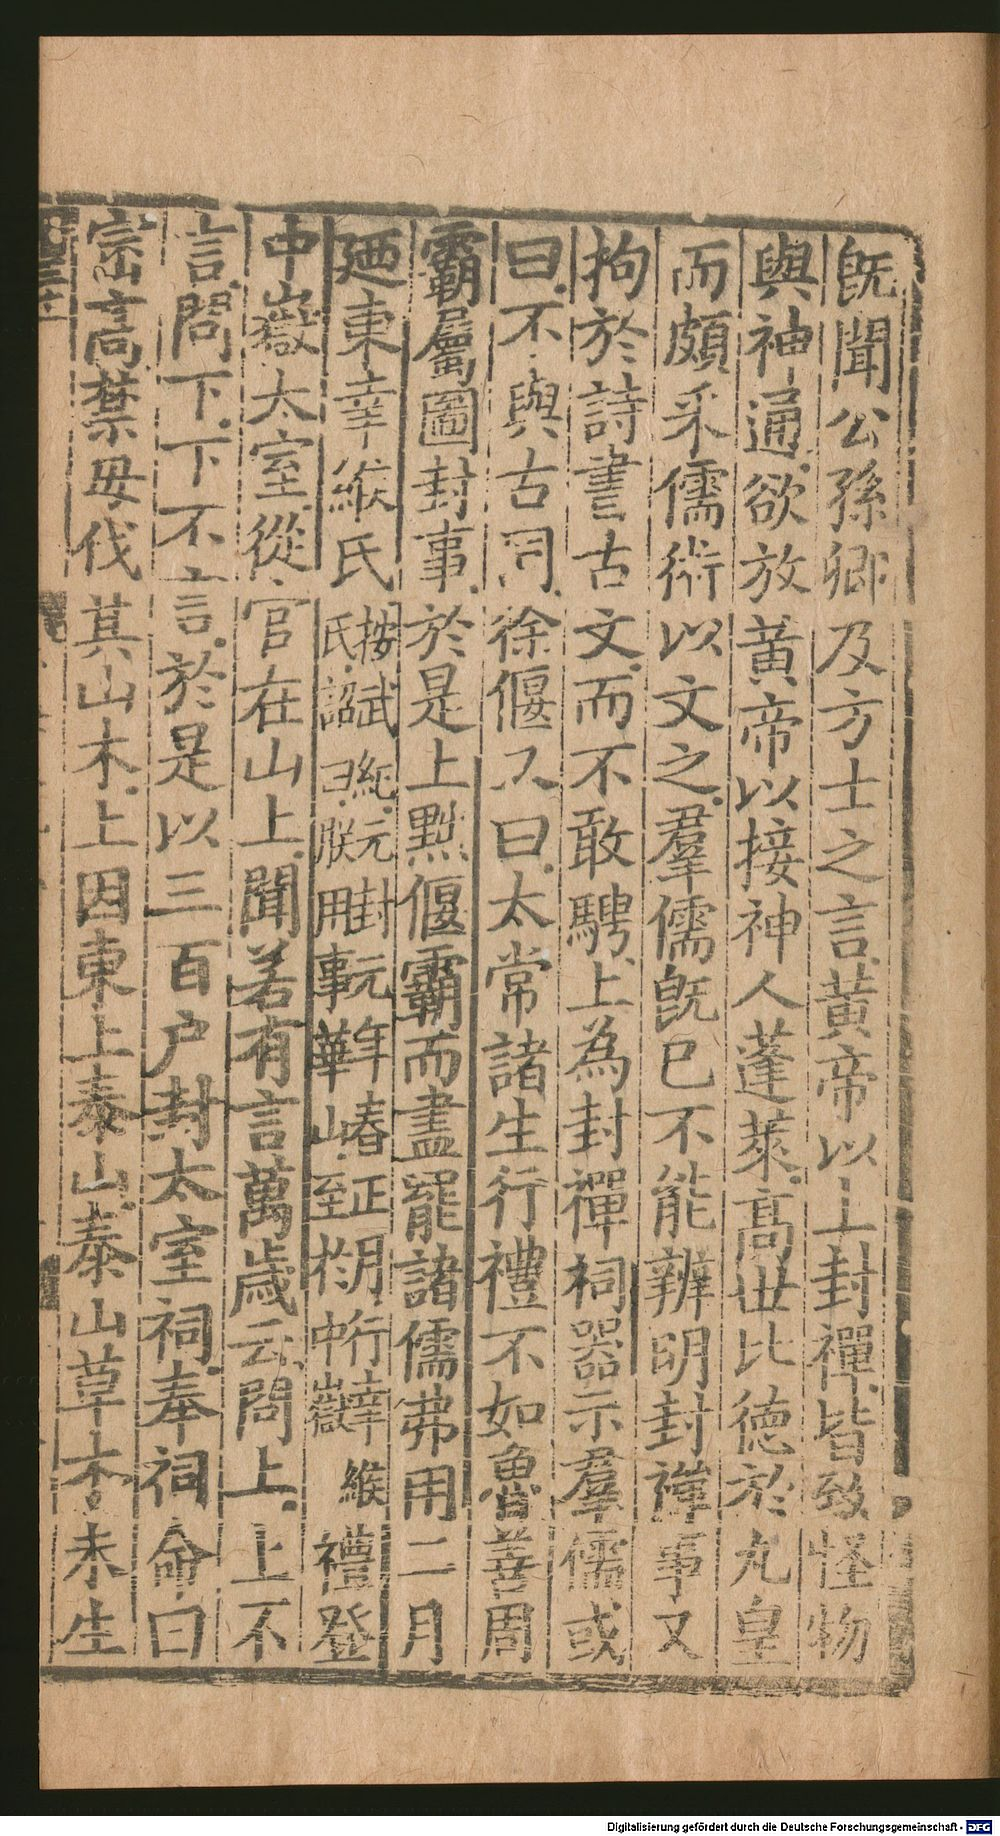 既聞公孫卿及方士之言黃帝以上封禪皆致怪物
與神通欲放黃帝以接神人蓬萊高世比德於九皇
而頗采儒術以文之羣儒既已不能辨明封禪事又
拘於詩書古文而不敢騁上為封禪祠器示羣儒或
曰不與古同徐偃又曰太常諸生行禮不如魯善周
霸屬圖封事於是上黜偃霸而盡罷諸儒弗用二月
廼東幸緱氏按武紀元封元年春正月行幸緱氏詔曰朕用事華山至於中嶽禮登
中嶽太室從官在山上聞若有言萬歲云問上上不
言問下下不言於是以三百户封太室祠奉祠命曰
崈高禁毋伐其山木上因東上泰山泰山草木未生
Digitalisierung gefördert durch die Deutsche Forschungsgemeinschaft - DFG